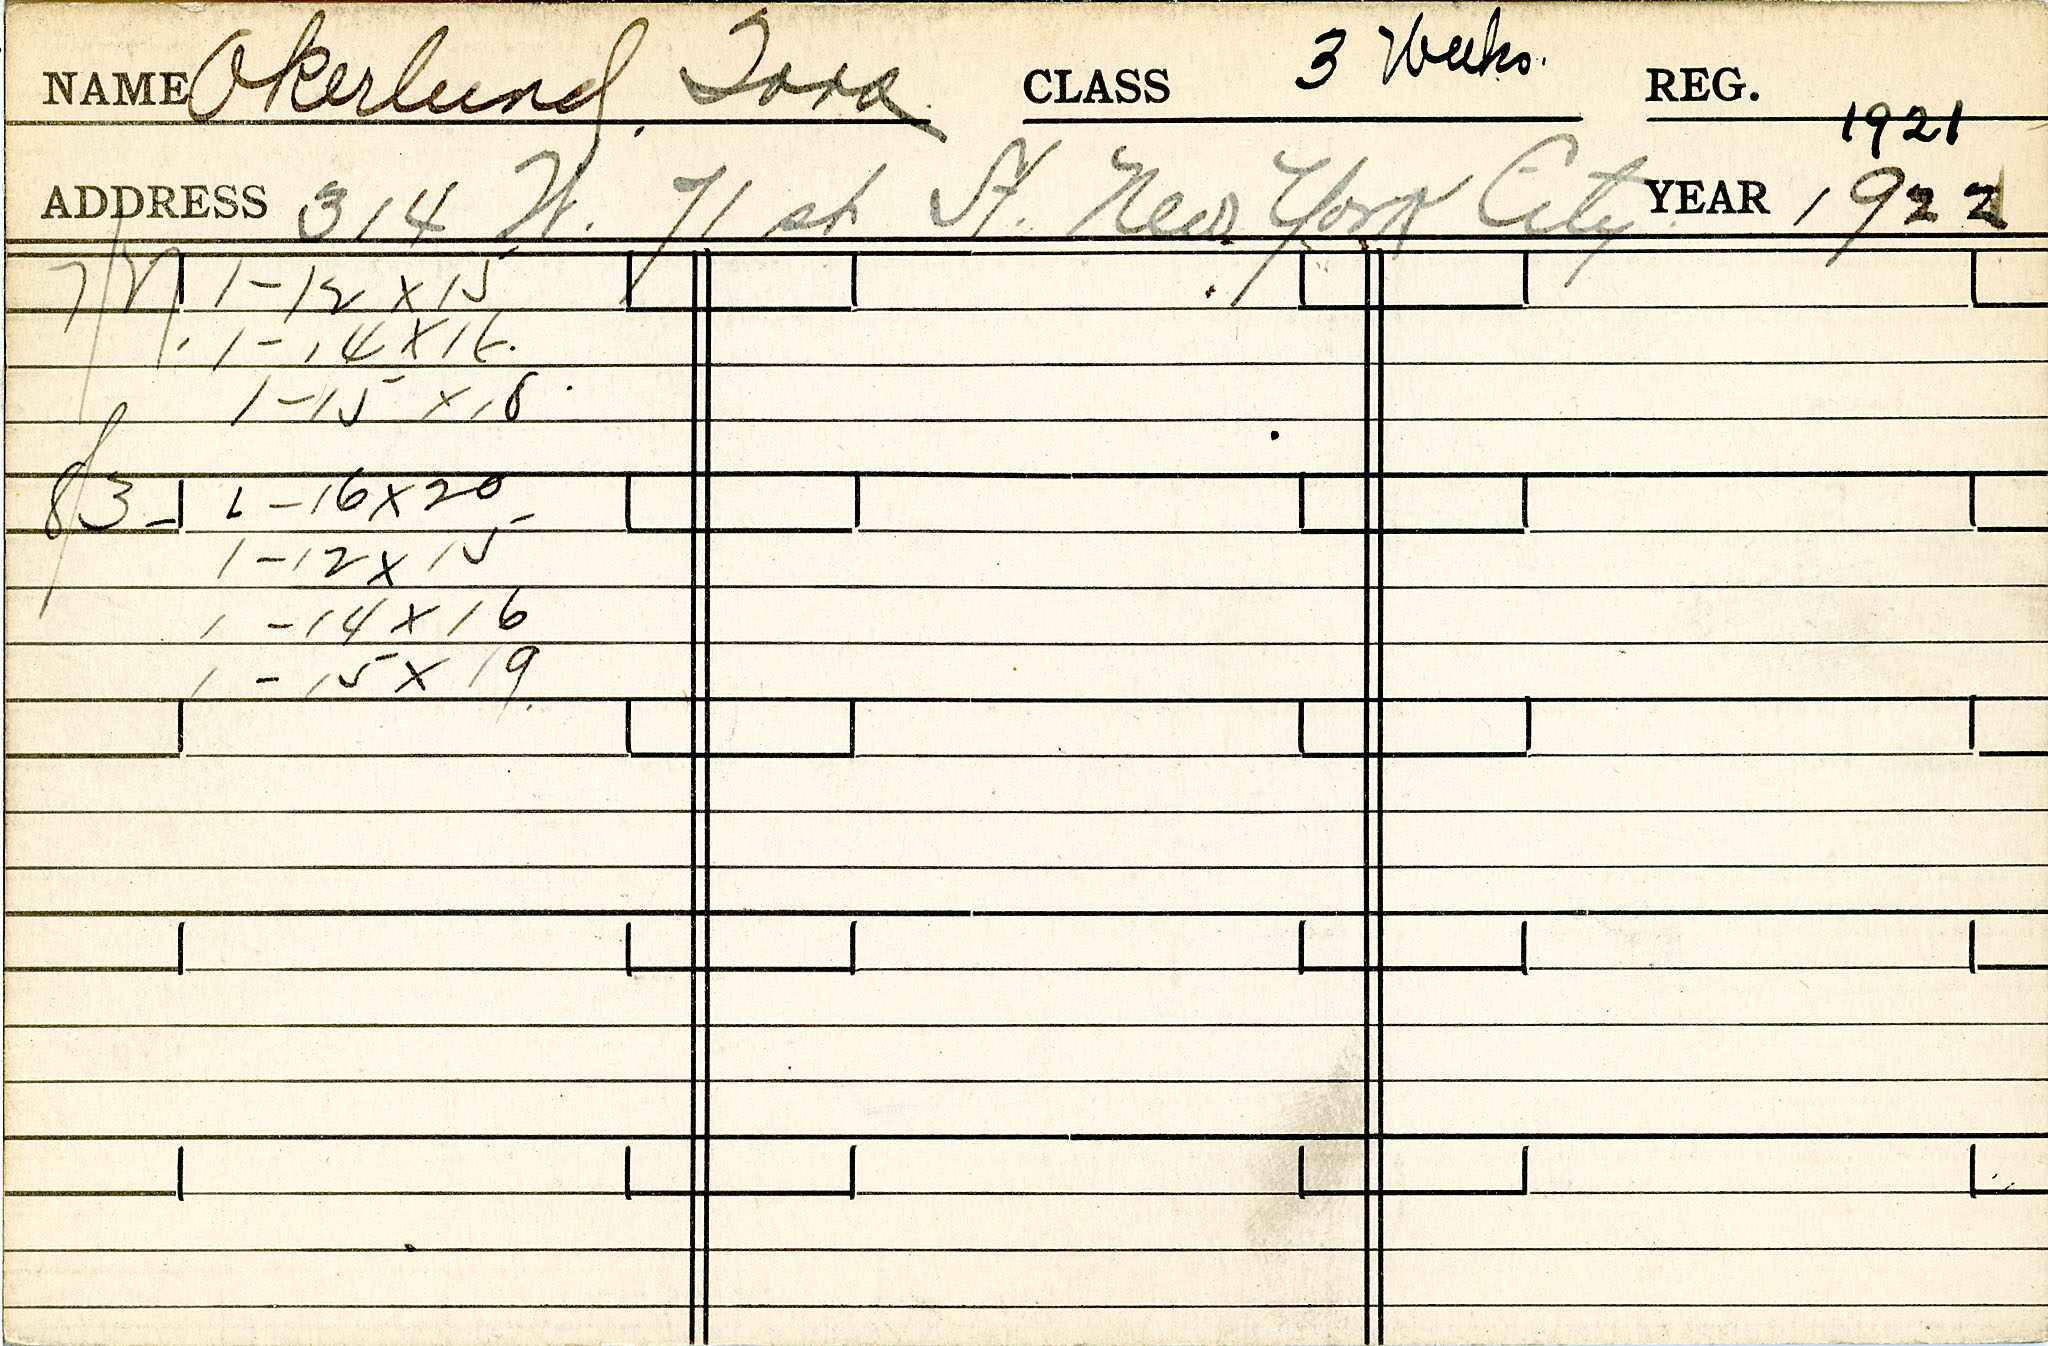 NAME Okerlund, CLASS 3 Weeks. REG.
1921
ADDRESS 314 W. 71 st St. New York City YEAR 1922
1-12 x 15
1-14 x 16.
1-15 x 18.
8/3 - 1-16 x 20
1-12 x 15
1-14 x 16
1-15 x 19